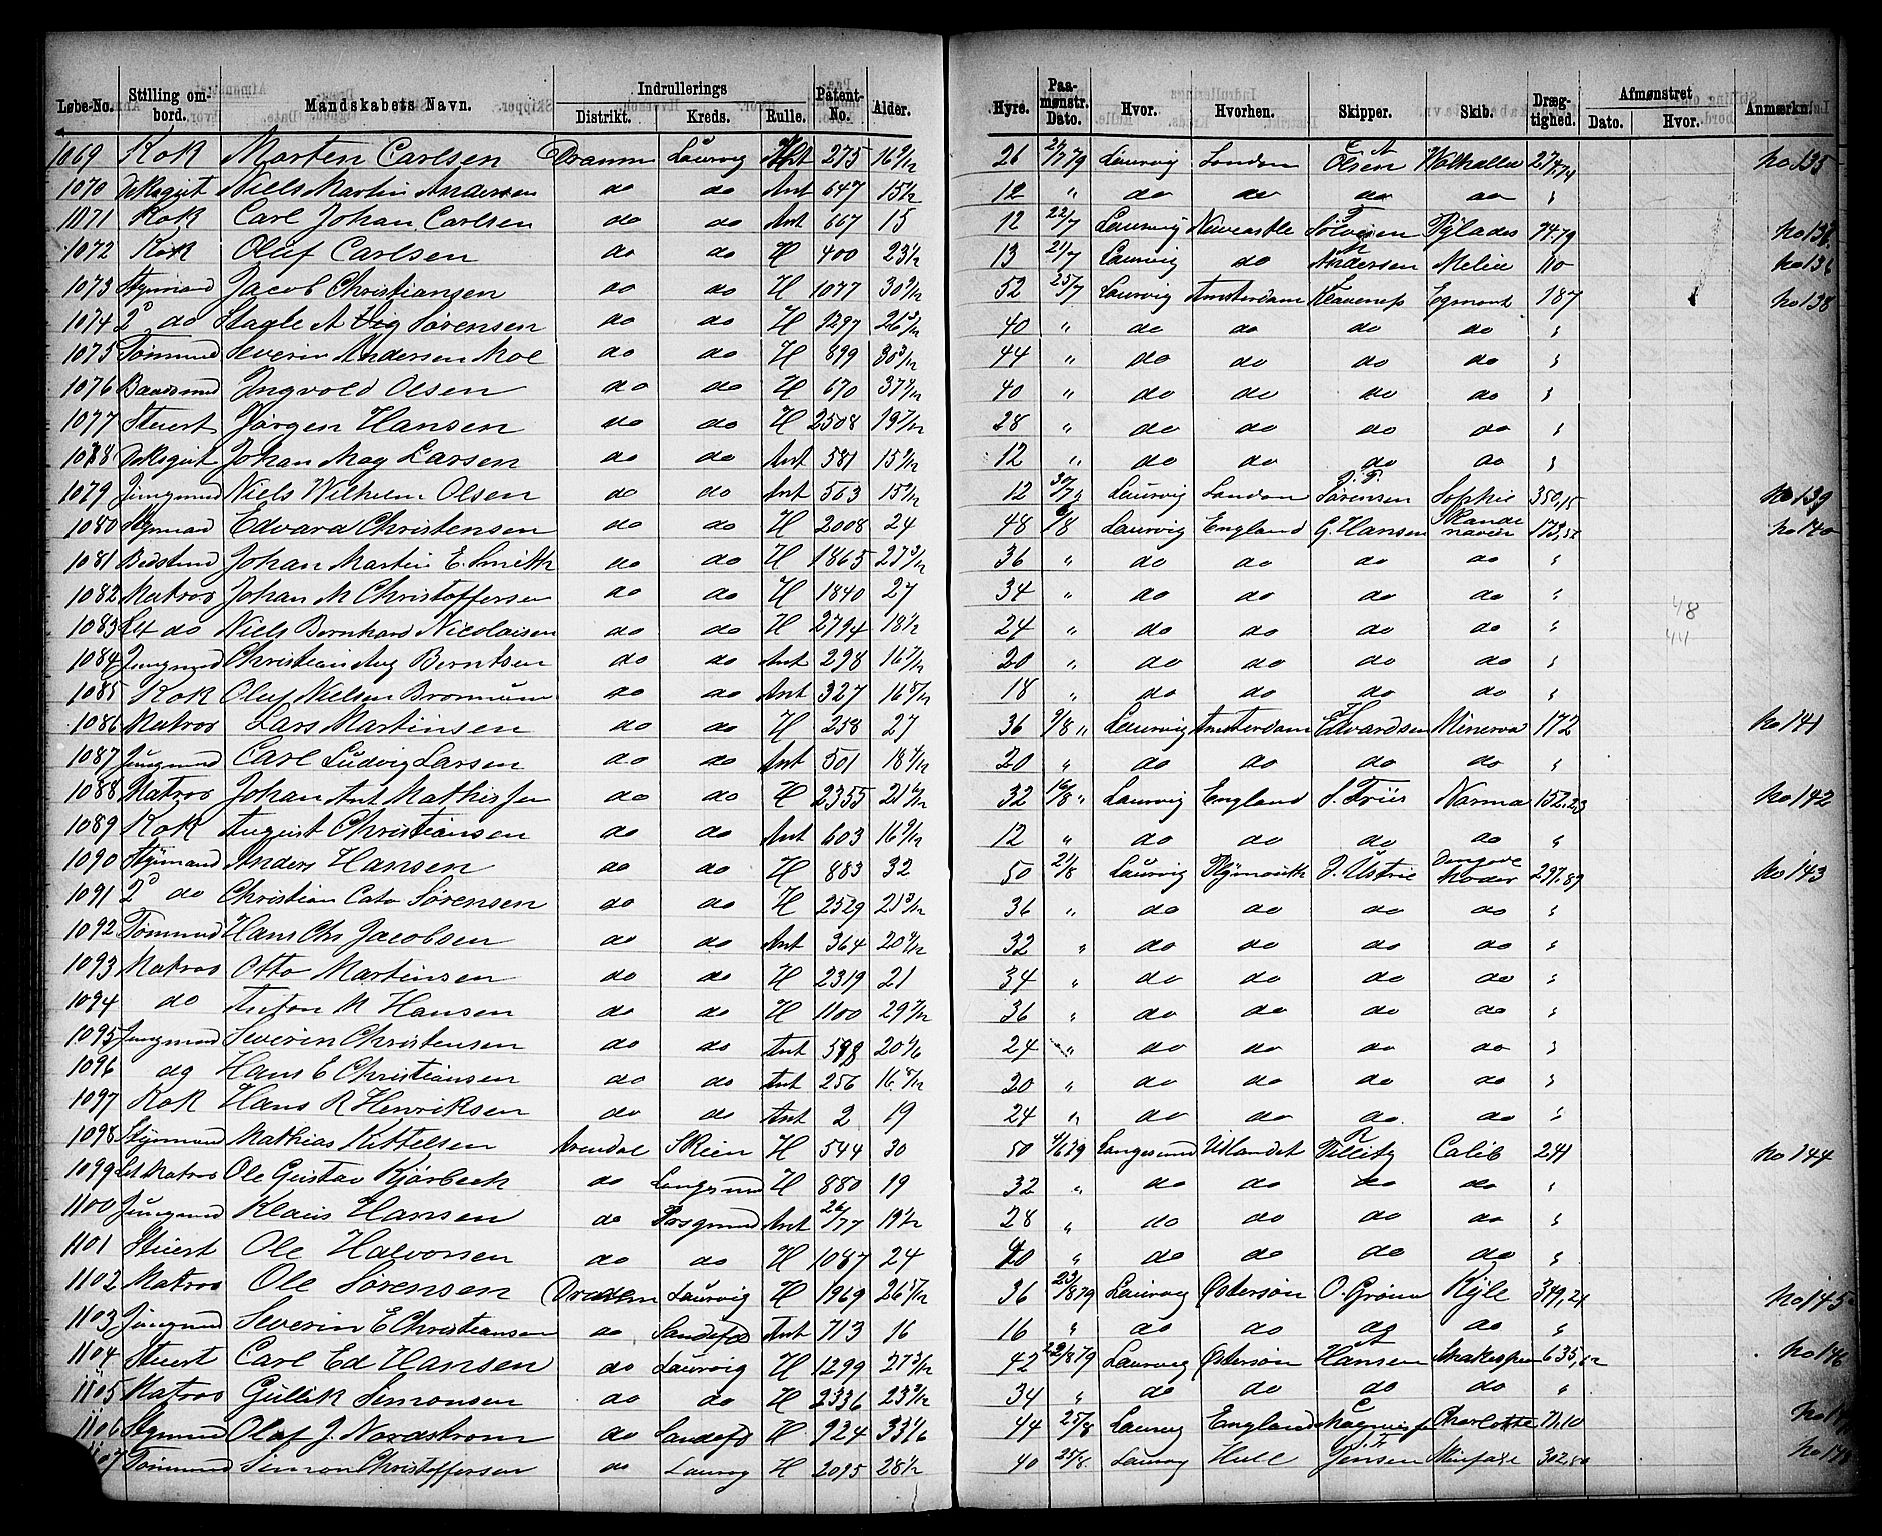 Løbe-No. Stilling ombord. Mandskabets Navn. Indrullerings Distrikt. Kreds. Rulle. Patent-No. Alder. Hyre. Paamønstr. Dato. Hvor. Hvorhen. Skipper. Skib. Drægtighed. Afmønstret Dato. Hvor. Anmærkn.
1069 Kok Morten Carlsen Dramm Laurvig Ant 275 16 9/12 26 21/7 79 Laurvig London Olsen Walhalla 274,74 No 135
1070 Niels Martin Andersen do do Ant 647 15 1/2 12 " do do do do "
1071 Kok Carl Johan Carlsen do do Ant 667 15 12 22/7 Laurvig Newcastle Pylades 74,79
1072 Kok Oluf Carlsen do do H 400 23 1/2 13 21/7 Laurvig do Andersen 110 No 136
1073 Stymand Jacob Christiansen do do H 1077 30 52 25/7 Laurvig Amsterdam Egmont 187 No 138
1074 2d do Sørensen do do H 40 " do do do do "
1075 Tømmd Severin Andersen Moe do do H 899 30 3/12 44 " do do do do "
1076 Ingvold Olsen do do H 670 37 40 " do do do do "
1077 Stuert Jørgen Hansen do do H 2508 19 7/12 28 " do do do do "
1078 Johan Larsen do do Ant 581 15 12 " do do do do "
1079 Jungmd Niels Wilhelm Olsen do do Ant 563 15 12 30/7 " Laurvig London Sørensen Sophie 350,15 No 139
1080 Stymand Edvard Christensen do do H 2008 24 48 6/8 Laurvig England G. Hansen Skandenavien 173,51 No 140
1081 Johan Martin E. Smith do do H 1865 27 36 " do do do do "
1082 Matros Johan M Christoffersen do do H 1840 27 34 " do do do do "
1083 Let do Niels Bernhard Nicolaisen do do H 2794 18 1/2 24 " do do do do "
1084 Jungmd Christian Aug Berntsen do do Ant 298 16 7/12 20 " do do do do "
1085 Kok Oluf Nielsen do do Ant 327 16 18 " do do do do "
1086 Matros Lars Martinsen do do H 258 27 36 9/8 " Laurvig Amsterdam Edvardsen Minerva 172 No 141
1087 Jungmd Carl Ludvig Larsen do do Ant 501 18 20 " do do do do "
1088 Matros Johan Ant Mathisen do do H 2355 21 32 16/8 " Laurvig England J. Friis Norma 152,23 No 142
1089 Kok August Christiansen do do Ant 603 16 9/12 12 " do do do do "
1090 Stymand Anders Hansen do do H 883 32 50 21/8 Laurvig Plymouth J. Ustrie den gode Moder 297,87 No 143
1091 2d do Christian Cato Sørensen do do H 2529 21 3/12 36 " do do do do "
1092 Tømmd Hans Chr Jacobsen do do Ant 364 20 32 " do do do do "
1093 Matros Otto Martinsen do do H 2319 21 34 " do do do do "
1094 do Anton M Hansen do do H 1100 29 7/12 36 " do do do do "
1095 Jungmd Severin Christensen do do Ant 598 20 1/6 24 " do do do do "
1096 do Hans E Christiansen do do Ant 256 16 20 " do do do do "
1097 Kok Hans R Henriksen do do Ant 2 19 24 " do do do do "
1098 Stymand Mathias Kittelsen Arendal Skien H 544 30 50 79 Langesund Udlandet Calib 241 No 144
1099 Let Matros Ole Gustav Kjørbeck do Langesund H 880 19 32 " do do do do "
1100 Jungmd Klaus Hansen do Porsgrund Ant 26/77 19 1/2 28 " do do do do "
1101 Stuert Ole Halvorsen do do H 1087 24 40 " do do do do "
1102 Matros Ole Sørensen Dramm Laurvig H 1969 26 5/12 36 23/8 79 Laurvig Østersøn O. Grønn Kyle 349,21 No 145
1103 Jungmd Severin E Christiansen do Sandefd Ant 713 16 16 " do do do do "
1104 Stuert Carl Ed Hansen do Laurvig H 1299 27 42 22/8 79 Laurvig Østersøn Hansen Shakespear 635,12 No 146
1105 Matros Gullik Simonsen do do H 2336 23 9/12 34 " do do do do "
1106 Stymand Olaf J. Nordstrom do Sandefd H 924 33 1/6 44 25/8 Laurvig England Charlotte 71,10
Tømmd Simon Christoffersen do Laurvig H 2095 28 1/2 40 25/8 Laurvig Hull Jensen 302,80
48
44